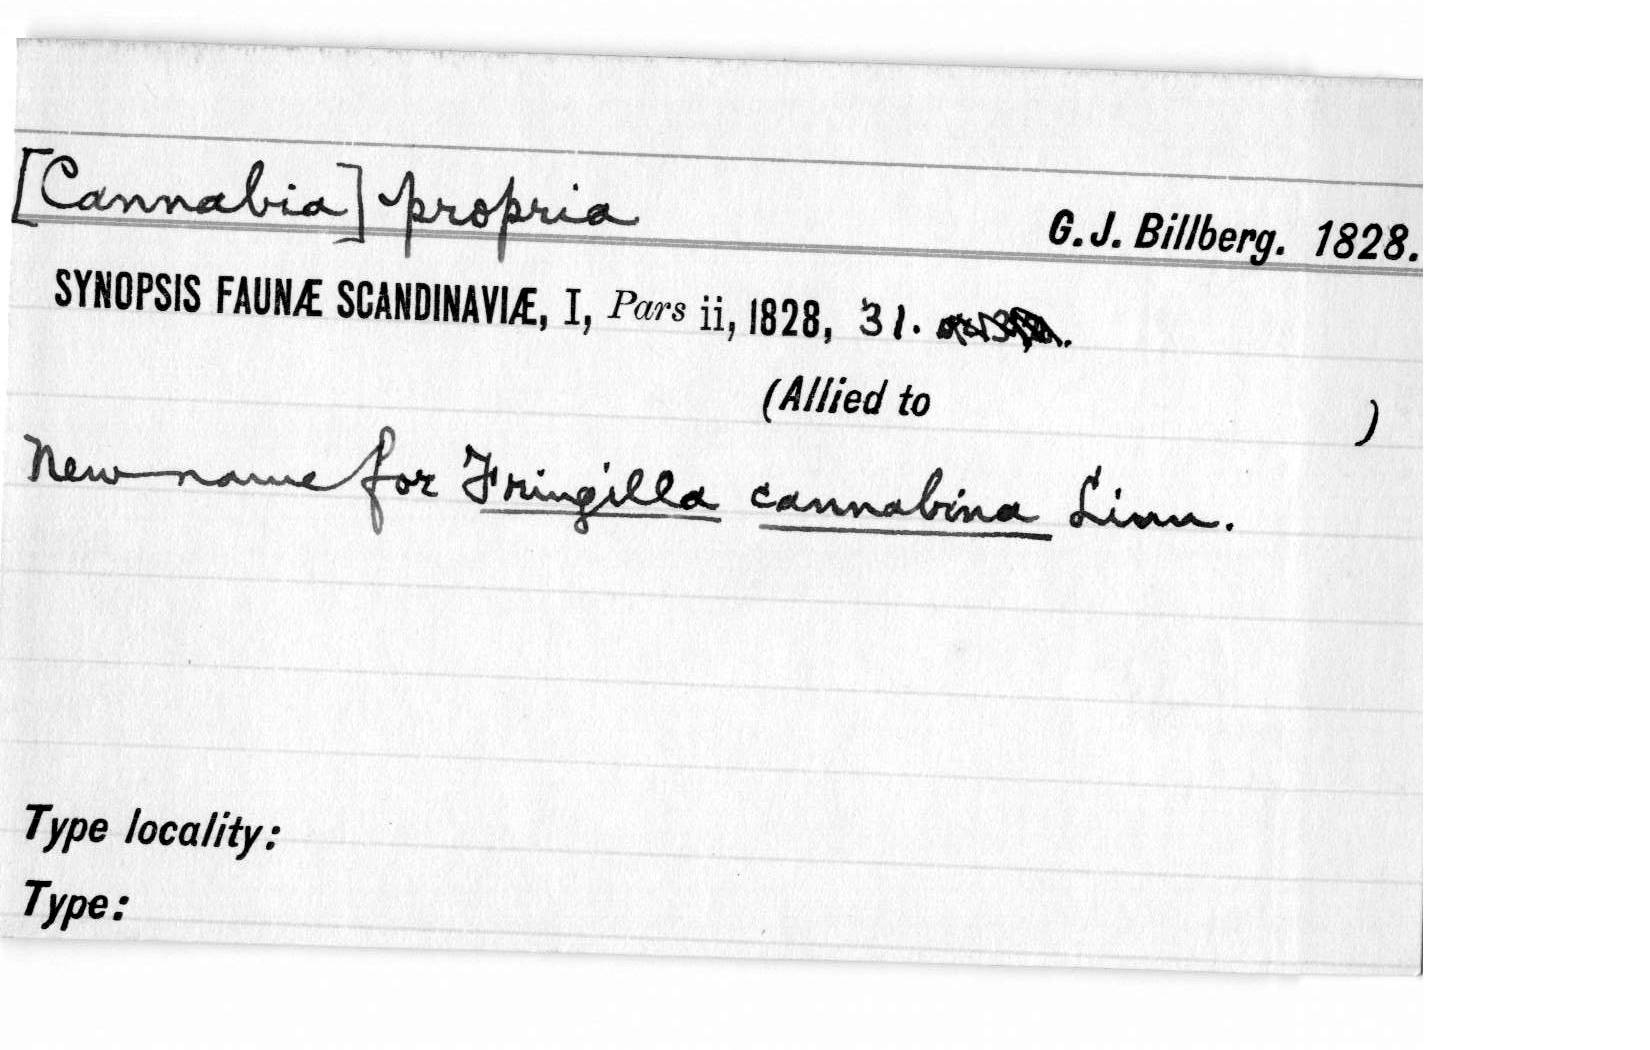 [Cannabia] propria
G.J. Billberg. 1828.
SYNOPSIS FAUNÆ SCANDINAVIÆ, I, Pars ii, 1828, 31.
(Allied to )
New name for Fringilla cannabina Linn.
Type locality:
Type: